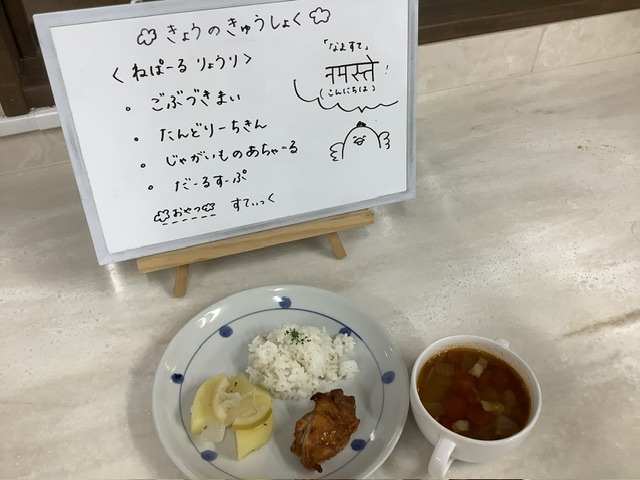 きょうのきゅうしょく
<ねぱーるりょうり>
・ごぶづきまい
・たんどりーちきん
・じゃがいものあちゃーる
・だーるすーぷ
おやつ すてぃっく
「なますて」
नमस्ते!
(こんにちは)